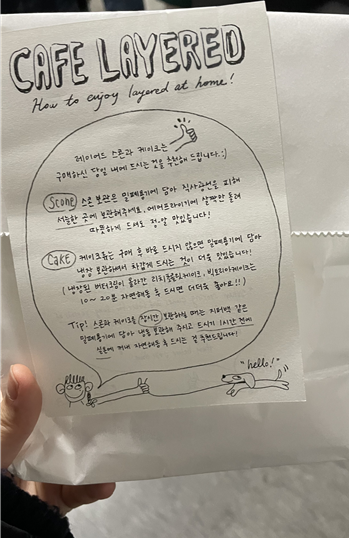 CAFE LAYERED
How to enjoy layered at home!
레이어드 스콘과 케이크는
구매하신 당일 내에 드시는 것을 추천해 드립니다. :)
Scone 스콘 보관은 밀폐용기에 담아 직사광선을 피해
서늘한 곳에 보관해주세요. 에어프라이기에 살짝만 돌려
따뜻하게 드셔도 정말 맛있습니다!
Cake 케이크류는 구매 후 바로 드시지 않으면 밀폐용기에 담아
냉장 보관하셔서 차갑게 드시는 것이 더욱 맛있습니다!
(냉장된 버터크림이 올라간 리치초콜릿케이크, 빅토리아케이크는
10~20분 자연해동 후 드시면 더더욱 좋아요!!)
Tip! 스콘과 케이크를 장시간 보관하실 때는 지퍼백 같은
밀폐용기에 담아 냉동 보관해 주시고 드시기 1시간 전에
실온에 꺼내 자연해동 후 드시는 걸 추천드립니다!
"hello!"